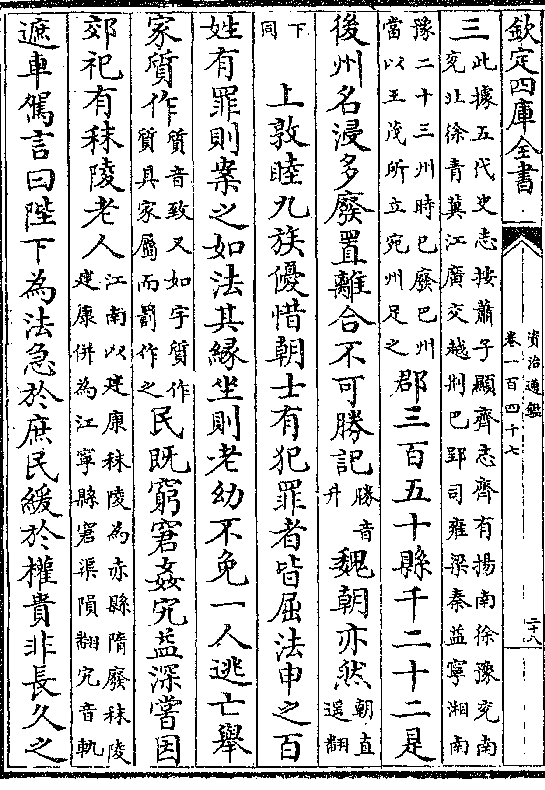 欽定四庫全書
資治通鑑
卷一百四十七
二十八
三此據五代史志按蕭子顯齊志齊有揚南徐豫兖南
兖北徐青冀江廣交越荆巴郢司雍梁秦益寧湘南
豫二十三州時已廢巴州
當以王茂所立宛州足之郡三百五十縣千二十二是
後州名浸多廢置離合不可勝記勝音升魏朝亦然朝直遥翻
下同上敦睦九族優惜朝士有犯罪者皆屈法申之百
姓有罪則案之如法其緣坐則老幼不免一人逃亡舉
家質作質音致又如字質作質具家屬而罰作之民既窮窘姦宄益深嘗因
郊祀有秣陵老人江南以建康秣陵為赤縣隋廢秣陵建康併為江寧縣窘渠隕翻宄音軌
遮車駕言曰陛下為法急於庶民緩於權貴非長久之